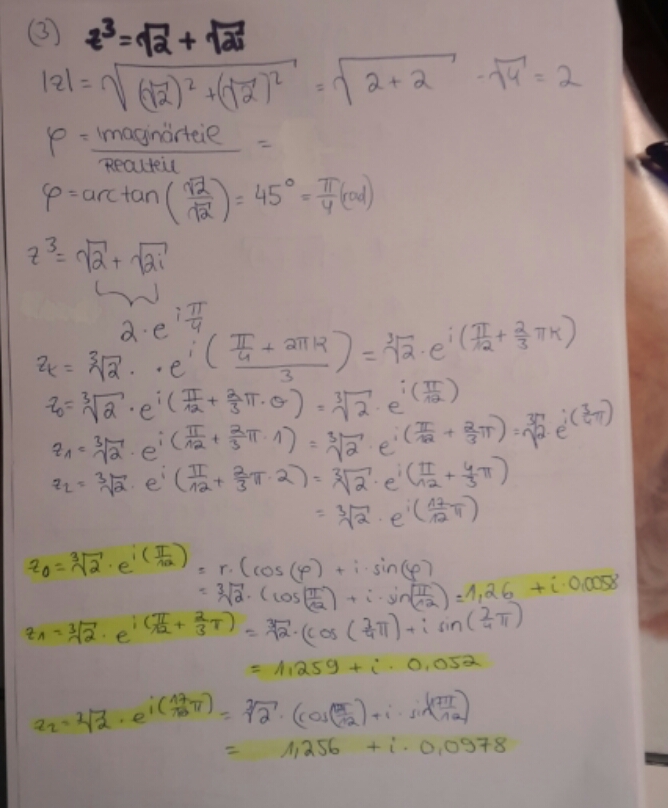 (3) z³ = √2 + √2i
|z| = √((√2)² + (√2)²) = √(2 + 2) = √4 = 2
φ = Imaginärteil / Realteil =
φ = arctan(√2/√2) = 45° = π/4 (rad)
z³ = √2 + √2i
2 · e^(i π/4)
z_k = ³√2 · · e^(i ((π/4 + 2πk)/3)) = ³√2 · e^(i(π/12 + 2/3 πk))
z₀ = ³√2 · e^(i(π/12 + 2/3 π · 0)) = ³√2 · e^(i(π/12))
z₁ = ³√2 · e^(i(π/12 + 2/3 π · 1)) = ³√2 · e^(i(π/12 + 2/3 π)) = ³√2 · e^(i(3/4 π))
z₂ = ³√2 · e^(i(π/12 + 2/3 π · 2)) = ³√2 · e^(i(π/12 + 4/3 π))
= ³√2 · e^(i(17/12 π))
z₀ = ³√2 · e^(i(π/12)) = r · (cos(φ) + i · sin(φ)
= ³√2 · (cos(π/12) + i · sin(π/12)) = 1,26 + i · 0,0058
z₁ = ³√2 · e^(i(π/12 + 2/3 π)) = ³√2 · (cos(3/4 π) + i sin(3/4 π)
= 1,259 + i · 0,052
z₂ = ³√2 · e^(i(17/12 π)) = ³√2 · (cos(17π/12) + i · sin(17π/12)
= 1,256 + i · 0,0978